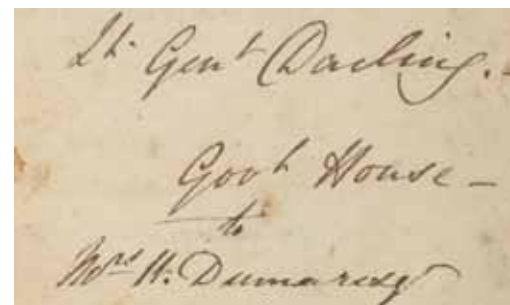 Lt. Genl Darling.
Govt House —
to
Mrs H: Dumaresq